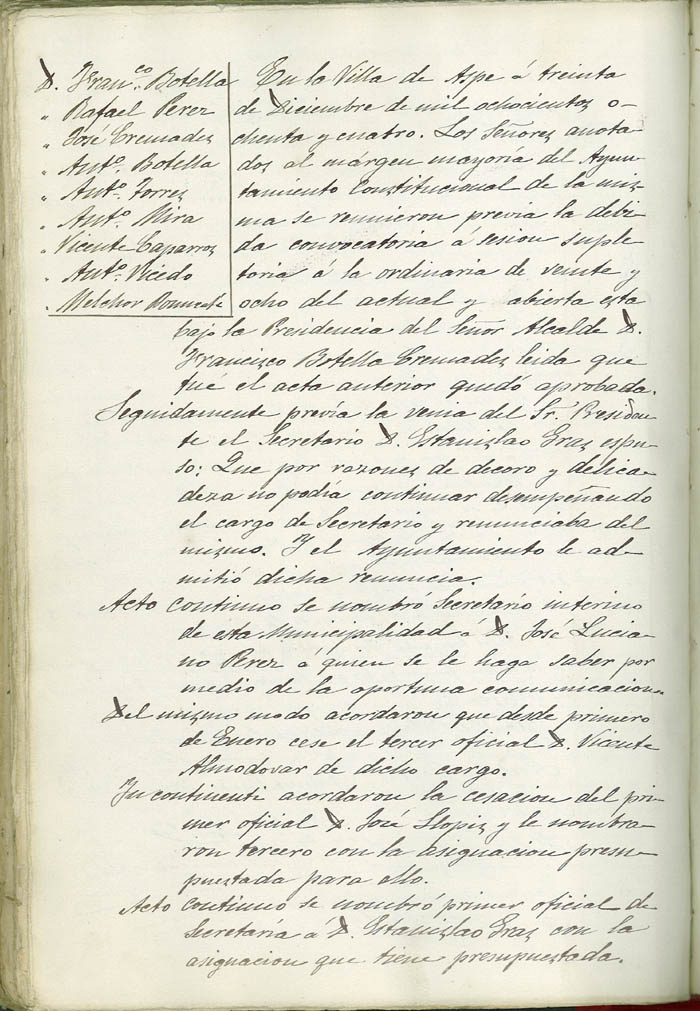 D. Fran.co Botella
" Rafael Perez
" José Cremades
" Ant.o Botella
" Ant.o Torres
" Ant.o Mira
" Vicente Caparros
" Ant.o Vicedo
" Melchor
En la Villa de Aspe á treinta
de Diciembre de mil ochocientos o-
chenta y cuatro. Los Señores anota-
dos al márgen mayoría del Ayun-
tamiento Constitucional de la mis-
ma se reunieron previa la debi-
da convocatoria á sesion suple-
toria á la ordinaria de veinte y
ocho del actual y abierta esta
bajo la Presidencia del Señor Alcalde D.
Francisco Botella Cremades leida que
fué el acta anterior quedó aprobada.
Seguidamente prévia la venia del Sr. Presiden-
te el Secretario D. Estanislao Eras espu-
so: Que por razones de decoro y delica-
deza no podía continuar desempeñando
el cargo de Secretario y renunciaba del
mismo. Y el Ayuntamiento le ad-
mitió dicha renuncia.
Acto continuo se nombró Secretario interino
de esta Municipalidad á D. José Lucia-
no Perez á quien se le haga saber por
medio de la oportuna comunicacion.
Del mismo modo acordaron que desde primero
de Enero cese el tercer oficial D. Vicente
Almodovar de dicho cargo.
In continenti acordaron la cesacion del pri-
mer oficial D. José Llopis y le nombra-
ron tercero con la asignacion presu-
puestada para ello.
Acto continuo se nombró primer oficial de
Secretaría á D. Estanislao Eras con la
asignacion que tiene presupuestada.